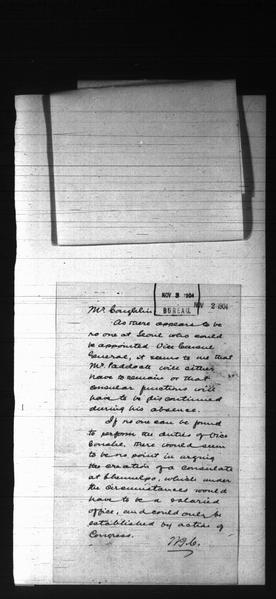 NOV 3 1904
BUREAU
NOV 2 1904
Mr. Coughlin
As there appears to be
no one at Seoul who could
be appointed Vice Consul
General, it seems to me that
Mr. Paddock will either
have to remain or that
consular functions will
have to be discontinued
during his absence.
If no one can be found
to perform the duties of Vice
Consul, there would seem
to be no point in urging
the creation of a consulate
at Chemulpo, which under
the circumstances would
have to be a salaried
office, and could only be
established by action of
Congress.